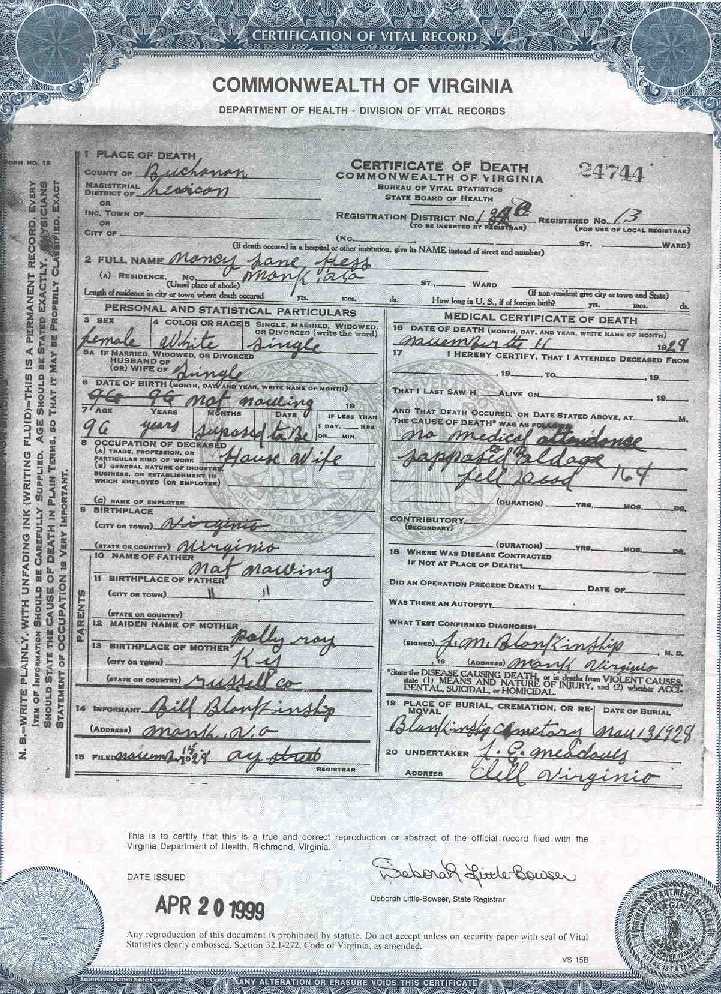 CERTIFICATION OF VITAL RECORD
COMMONWEALTH OF VIRGINIA
DEPARTMENT OF HEALTH - DIVISION OF VITAL RECORDS
FORM NO. 12
N. B.—WRITE PLAINLY, WITH UNFADING INK (WRITING FLUID)—THIS IS A PERMANENT RECORD. EVERY
ITEM OF INFORMATION SHOULD BE CAREFULLY SUPPLIED. AGE SHOULD BE STATED EXACTLY. PHYSICIANS
SHOULD STATE THE CAUSE OF DEATH IN PLAIN TERMS, SO THAT IT MAY BE PROPERLY CLASSIFIED. EXACT
STATEMENT OF OCCUPATION IS VERY IMPORTANT.
1 PLACE OF DEATH
COUNTY OF Buchanon
MAGISTERIAL
DISTRICT OF
OR
INC. TOWN OF
OR
CITY OF
CERTIFICATE OF DEATH
COMMONWEALTH OF VIRGINIA
BUREAU OF VITAL STATISTICS
STATE BOARD OF HEALTH
24744
REGISTRATION DISTRICT NO.
REGISTERED NO. 13
(TO BE INSERTED BY REGISTRAR)
(FOR USE OF LOCAL REGISTRAR)
(NO. ST. WARD)
(If death occured in a hospital or other institution, give its NAME instead of street and number)
2 FULL NAME Nancy Jane Hess
(A) RESIDENCE. NO. ST., WARD
(Usual place of abode)
(If non-resident give city or town and State)
Length of residence in city or town where death occured yrs. mos. ds.
How long in U. S., if of foreign birth? yrs. mos. ds.
PERSONAL AND STATISTICAL PARTICULARS
3 SEX
female
4 COLOR OR RACE
White
5 SINGLE, MARRIED, WIDOWED, OR DIVORCED (write the word)
Single
5A IF MARRIED, WIDOWED, OR DIVORCED
HUSBAND OF
(OR) WIFE OF Single
6 DATE OF BIRTH (MONTH, DAY AND YEAR, WRITE NAME OF MONTH)
96 96 not nowing 19
7 AGE YEARS MONTHS DAYS IF LESS THAN
1 DAY, HRS
OR MIN.
96 years suposed to Be
8 OCCUPATION OF DECEASED
(A) TRADE, PROFESSION, OR
PARTICULAR KIND OF WORK House Wife
(B) GENERAL NATURE OF INDUSTRY,
BUSINESS, OR ESTABLISHMENT IN
WHICH EMPLOYED (OR EMPLOYER)
(C) NAME OF EMPLOYER
9 BIRTHPLACE
(CITY OR TOWN) Virginia
(STATE OR COUNTRY) Virginia
PARENTS
10 NAME OF FATHER
not nowing
11 BIRTHPLACE OF FATHER
(CITY OR TOWN) " "
(STATE OR COUNTRY)
12 MAIDEN NAME OF MOTHER
Polly ray
13 BIRTHPLACE OF MOTHER
(CITY OR TOWN) Ky
(STATE OR COUNTRY)
russell co
14 INFORMANT Bill Blankinship
(ADDRESS) monk, Va
15 FILED 1928
REGISTRAR
MEDICAL CERTIFICATE OF DEATH
16 DATE OF DEATH (MONTH, DAY, AND YEAR, WRITE NAME OF MONTH)
1928
17 I HEREBY CERTIFY, THAT I ATTENDED DECEASED FROM
, 19 TO , 19
THAT I LAST SAW H ALIVE ON , 19
AND THAT DEATH OCCURED, ON DATE STATED ABOVE, AT M.
THE CAUSE OF DEATH* WAS AS FOLLOWS:
no medical attendance
supposed old age
fell dead 164
(DURATION) YRS. MOS. DS.
CONTRIBUTORY
(SECONDARY)
(DURATION) YRS. MOS. DS.
18 WHERE WAS DISEASE CONTRACTED
IF NOT AT PLACE OF DEATH?
DID AN OPERATION PRECEDE DEATH? DATE OF
WAS THERE AN AUTOPSY?
WHAT TEST CONFIRMED DIAGNOSIS?
(SIGNED) J. M. Blankinship M. D.
, 19 (ADDRESS) monk Virginia
*State the DISEASE CAUSING DEATH, or in deaths from VIOLENT CAUSES,
state (1) MEANS AND NATURE OF INJURY, and (2) whether ACCI-
DENTAL, SUICIDAL, or HOMICIDAL.
19 PLACE OF BURIAL, CREMATION, OR RE-
MOVAL
DATE OF BURIAL
Blankinship Cemetary nov 13 1928
20 UNDERTAKER J. C. meadows
ADDRESS Clell Virginia
This is to certify that this is a true and correct reproduction or abstract of the official record filed with the
Virginia Department of Health, Richmond, Virginia.
DATE ISSUED
APR 20 1999
Deborah Little-Bowser
Deborah Little-Bowser, State Registrar
Any reproduction of this document is prohibited by statute. Do not accept unless on security paper with seal of Vital
Statistics clearly embossed. Section 32.1-272, Code of Virginia, as amended.
VS 15B
ANY ALTERATION OR ERASURE VOIDS THIS CERTIFICATE